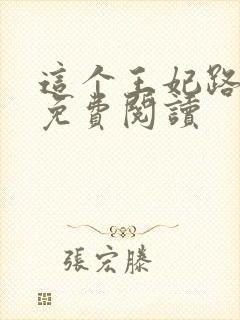 這个王妃路
免費閱讀
張宏滕